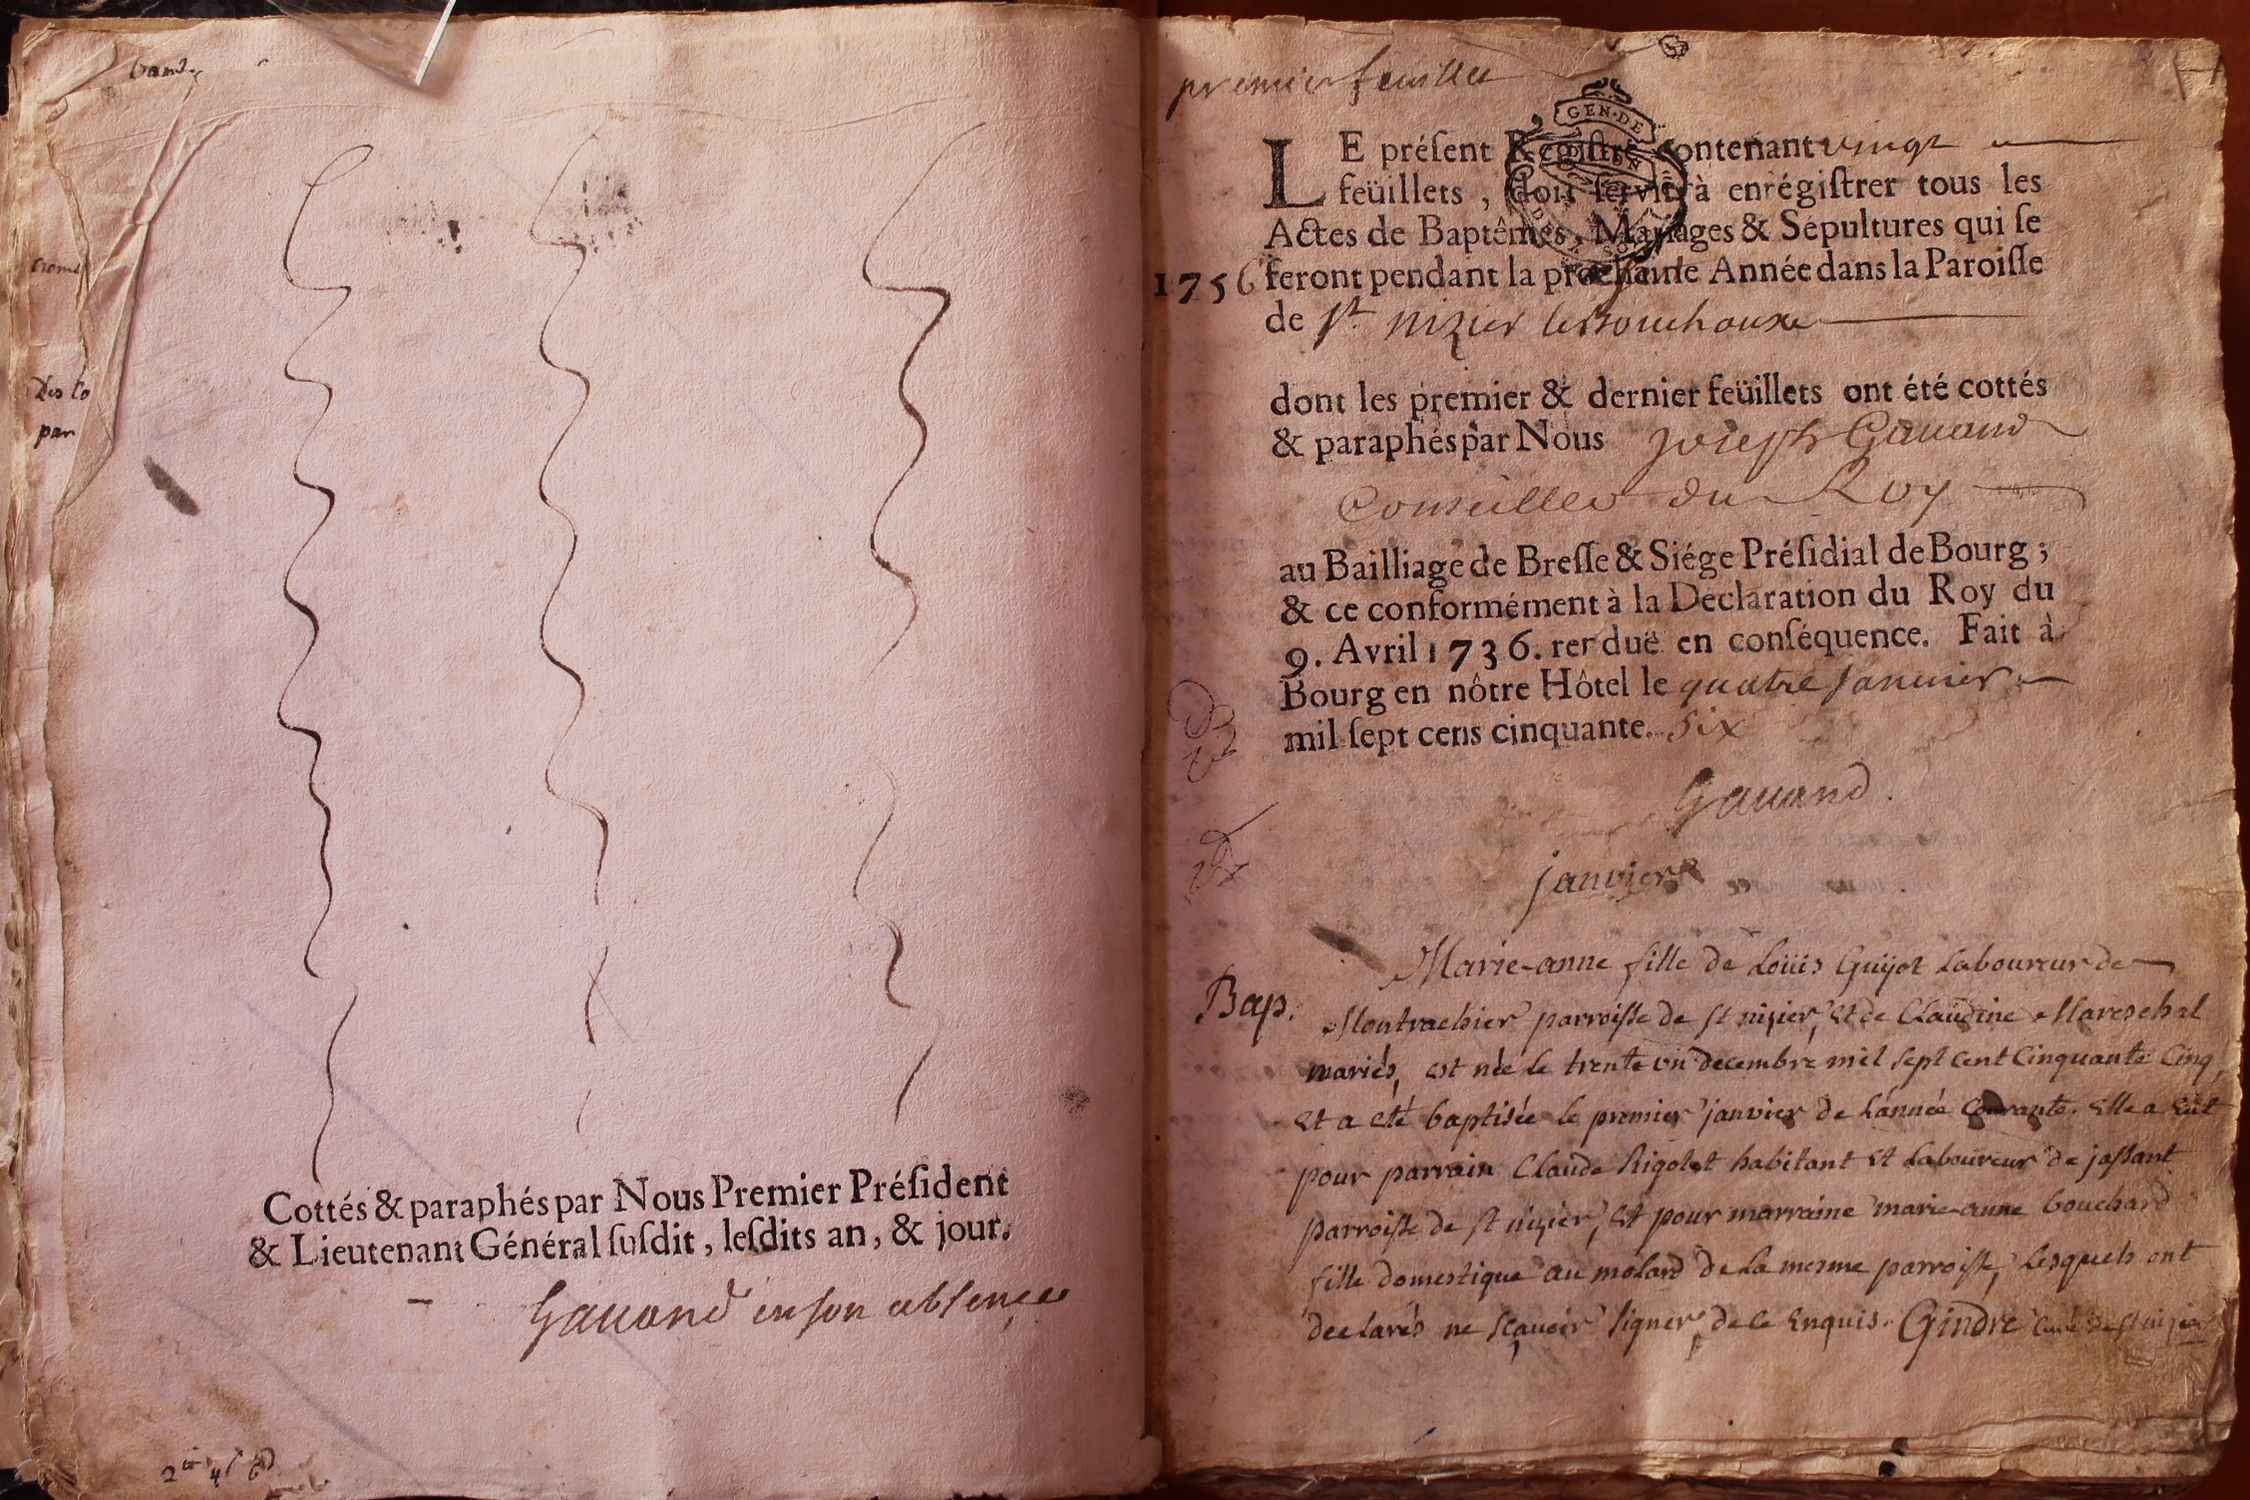 Cottés & paraphés par Nous Premier Préſident
& Lieutenant Général ſuſdit, leſdits an, & jour.
Gauand en son absence
premier feuillet
1756
LE préſent Regiſtre contenant vingt
feüillets, doit ſervir à enrégiſtrer tous les
Actes de Baptêmes, Mariages & Sépultures qui ſe
feront pendant la prochaine Année dans la Paroiſſe
de St. nizier leBouchoux
dont les premier & dernier feüillets ont été cottés
& paraphés par Nous Joseph Gauand
Conseiller du Roy
au Bailliage de Breſſe & Siége Préſidial de Bourg;
& ce conformément à la Déclaration du Roy du
9. Avril 1736. renduë en conſéquence. Fait à
Bourg en nôtre Hôtel le quatre Janvier
mil ſept cens cinquante. Six
Gauand.
janvier
Bap.
Marie-anne fille de Loüis Guÿot Laboureur de
Montrachier parroisse de st nizier, et de Claudine Mareschal
mariés, est née le trente un decembre mil sept cent Cinquante Cinq,
et a eté baptisée le premier janvier de l'année courante. elle a eut
pour parrain Claude Rigolet habitant et Laboureur de jassant
parroisse de st nizier, et pour marraine marie-anne bouchard
fille domestique au molard de la mesme parroisse, lesquels ont
declarés ne sçavoir signer de ce enquis. Gindre curé de st nizier